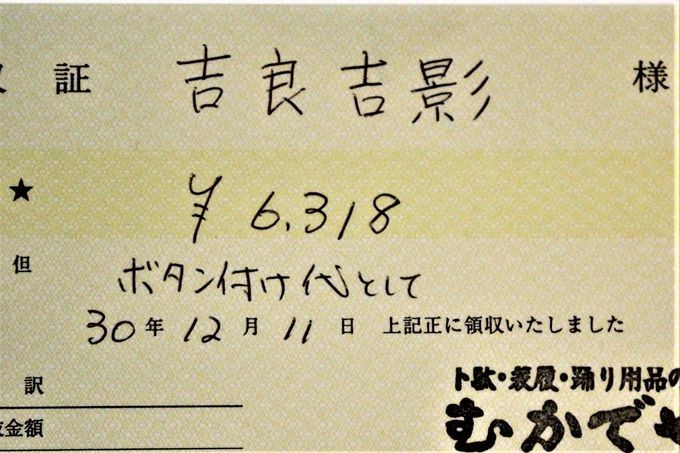 証 吉良吉影 様
★ ¥6,318
但 ボタン付け代として
30年12月11日 上記正に領収いたしました
訳
金額
下駄・草履・踊り用品の
むかでや